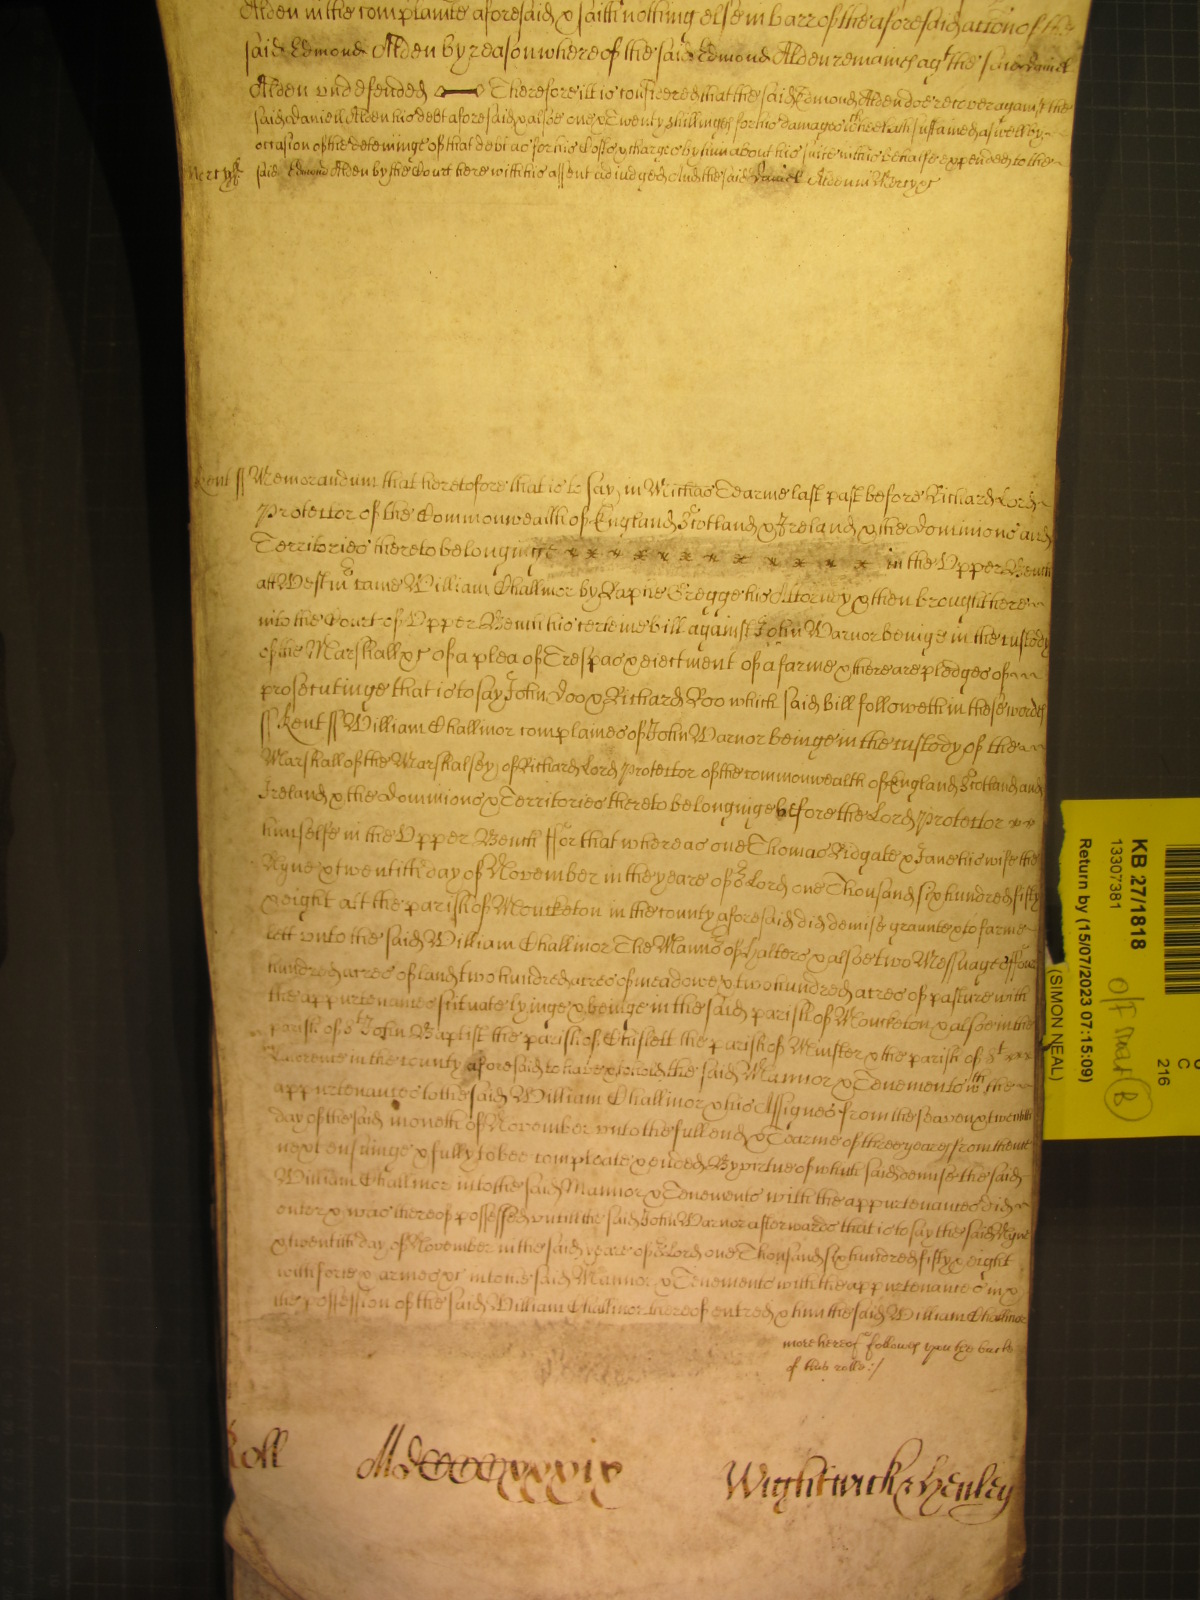 Alden in the complainte aforesaid & saith nothing else in barr of the aforesaid action of the
said Edmond Alden by reason whereof the said Edmond Alden remaines agt the said Daniel
Alden undefended Therefore itt is considered that the said Edmond Alden doe recover against the
said Daniell Alden his debt aforesaid & alsoe one & twenty shillinges for his damages wch hee hath susteined aswell by
occasion of the deteininge of that debt as for his Costs & charges by him about his suite in this behalfe expended to the
Mercy &c said Edmond Alden by the Court here with his assent adiudged And the said Daniell Alden in Mercy &c
Kent ss Memorandum that heretofore that is to say in Michas Tearme last past before Richard Lord
Protector of the Commonwealth of England Scotland & Ireland & the dominions and
Territories thereto belonginge x x x x x x x x x x x x in the Upper Bench
att Westmr came William Challinor by Gregge his Attorney & then brought here
into the Court of Upper Bench his certeine bill against John Warnor beinge in the custody
of the Marshall &c of a plea of Trespas & eiectment of a farme & there are pledges of
prosecutinge that is to say John Doo & Richard Roo which said bill followeth in these wordes
ss Kent ss William Challinor complaines of John Warnor beinge in the custody of the
Marshall of the Marshalsey of Richard Lord Protector of the commonwealth of England Scotland and
Ireland & the dominions & Territories thereto belonginge before the Lord Protector x x
himselfe in the Upper Bench ffor that whereas one Thomas Ridgate & Jane his wife the
Nyne & twentith day of November in the yeare of or Lord one Thousand six hundred fifty
& eight att the parish of Monketon in the county aforesaid did demise graunte & to farme
lett unto the said William Challinor The Mannor of & alsoe two Messuages ffour
hundred acres of land two hundred acres of meadowe & two hundred acres of pasture with
the appurtenances situate lyinge & beinge in the said parish of Monketon & alsoe in the
parish of St John Baptist the parish of Chislett the parish of Minster & the parish of St x x x
in the county aforesaid to have & to hould the said Mannor & Tenements wth the
appurtenances to the said William Challinor & his Assignes from the seaven & twentith
day of the said moneth of November unto the full end & Tearme of three yeares from thence
next ensuinge & fully to bee compleate & ended By vertue of which said demise the said
William Challinor into the said Mannor & Tenements with the appurtenances did
enter & was thereof possessed untill the said John Warnor afterwards that is to say the said Nyne
& twentith day of November in the said yeare of or Lord one Thousand six hundred fifty & eight
with force & armes &c into the said Mannor & Tenements with the appurtenances in &
the possession of the said William Challinor thereof entred & him the said William Challinor
more hereof followes upon the backe
of this rolle :/
Roll Mdccccxxxix Wightwick & Henley
KB 27/1818
13307381
Return by (15/07/2023 07:15:09)
(SIMON NEAL)
C
216